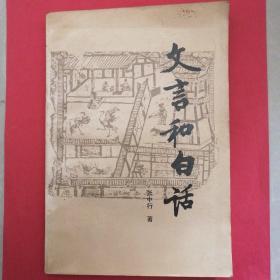 文言和白话
张中行 著